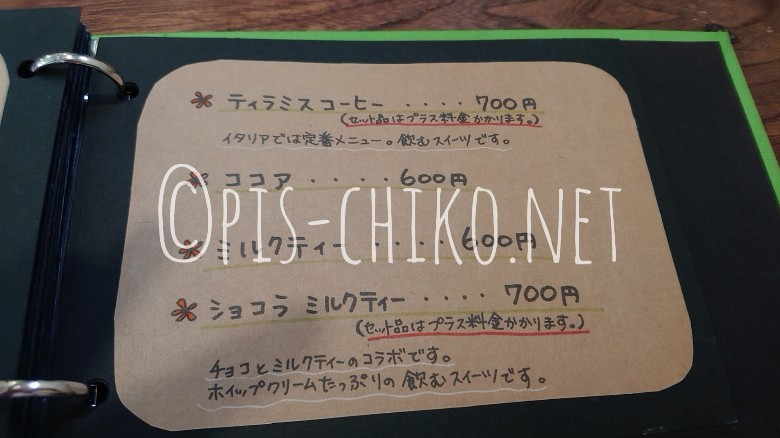 ティラミスコーヒー ・・・・ 700円
(セット品はプラス料金かかります。)
イタリアでは定番メニュー。飲むスイーツです。
ココア ・・・・ 600円
©PIS-CHIKO.NET
ミルクティー ・・・・ 600円
ショコラ ミルクティー ・・・・ 700円
(セット品はプラス料金かかります。)
チョコとミルクティーのコラボです。
ホイップクリームたっぷりの飲むスイーツです。